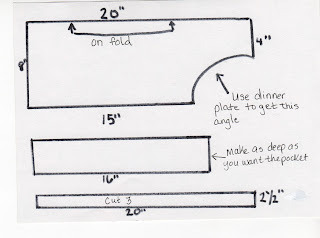 20"
on fold
8"
4"
Use dinner
plate to get this
angle
15"
Make as deep as
you want the pocket
16"
Cut 3
2 1/2"
20"